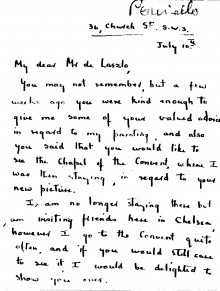 36, Church St. S.W.3.
July 10th
My dear Mr de Laszlo,
You may not remember, but a few
weeks ago you were kind enough to
give me some of your valued advice
in regard to my painting, and also
you said that you would like to
see the Chapel of the Convent, where I
was then staying, in regard to your
new picture.
I, am no longer staying there but
am visiting friends here in Chelsea,
however I go to the Convent quite
often, and if you would still care
to see it I would be delighted to
show you over.